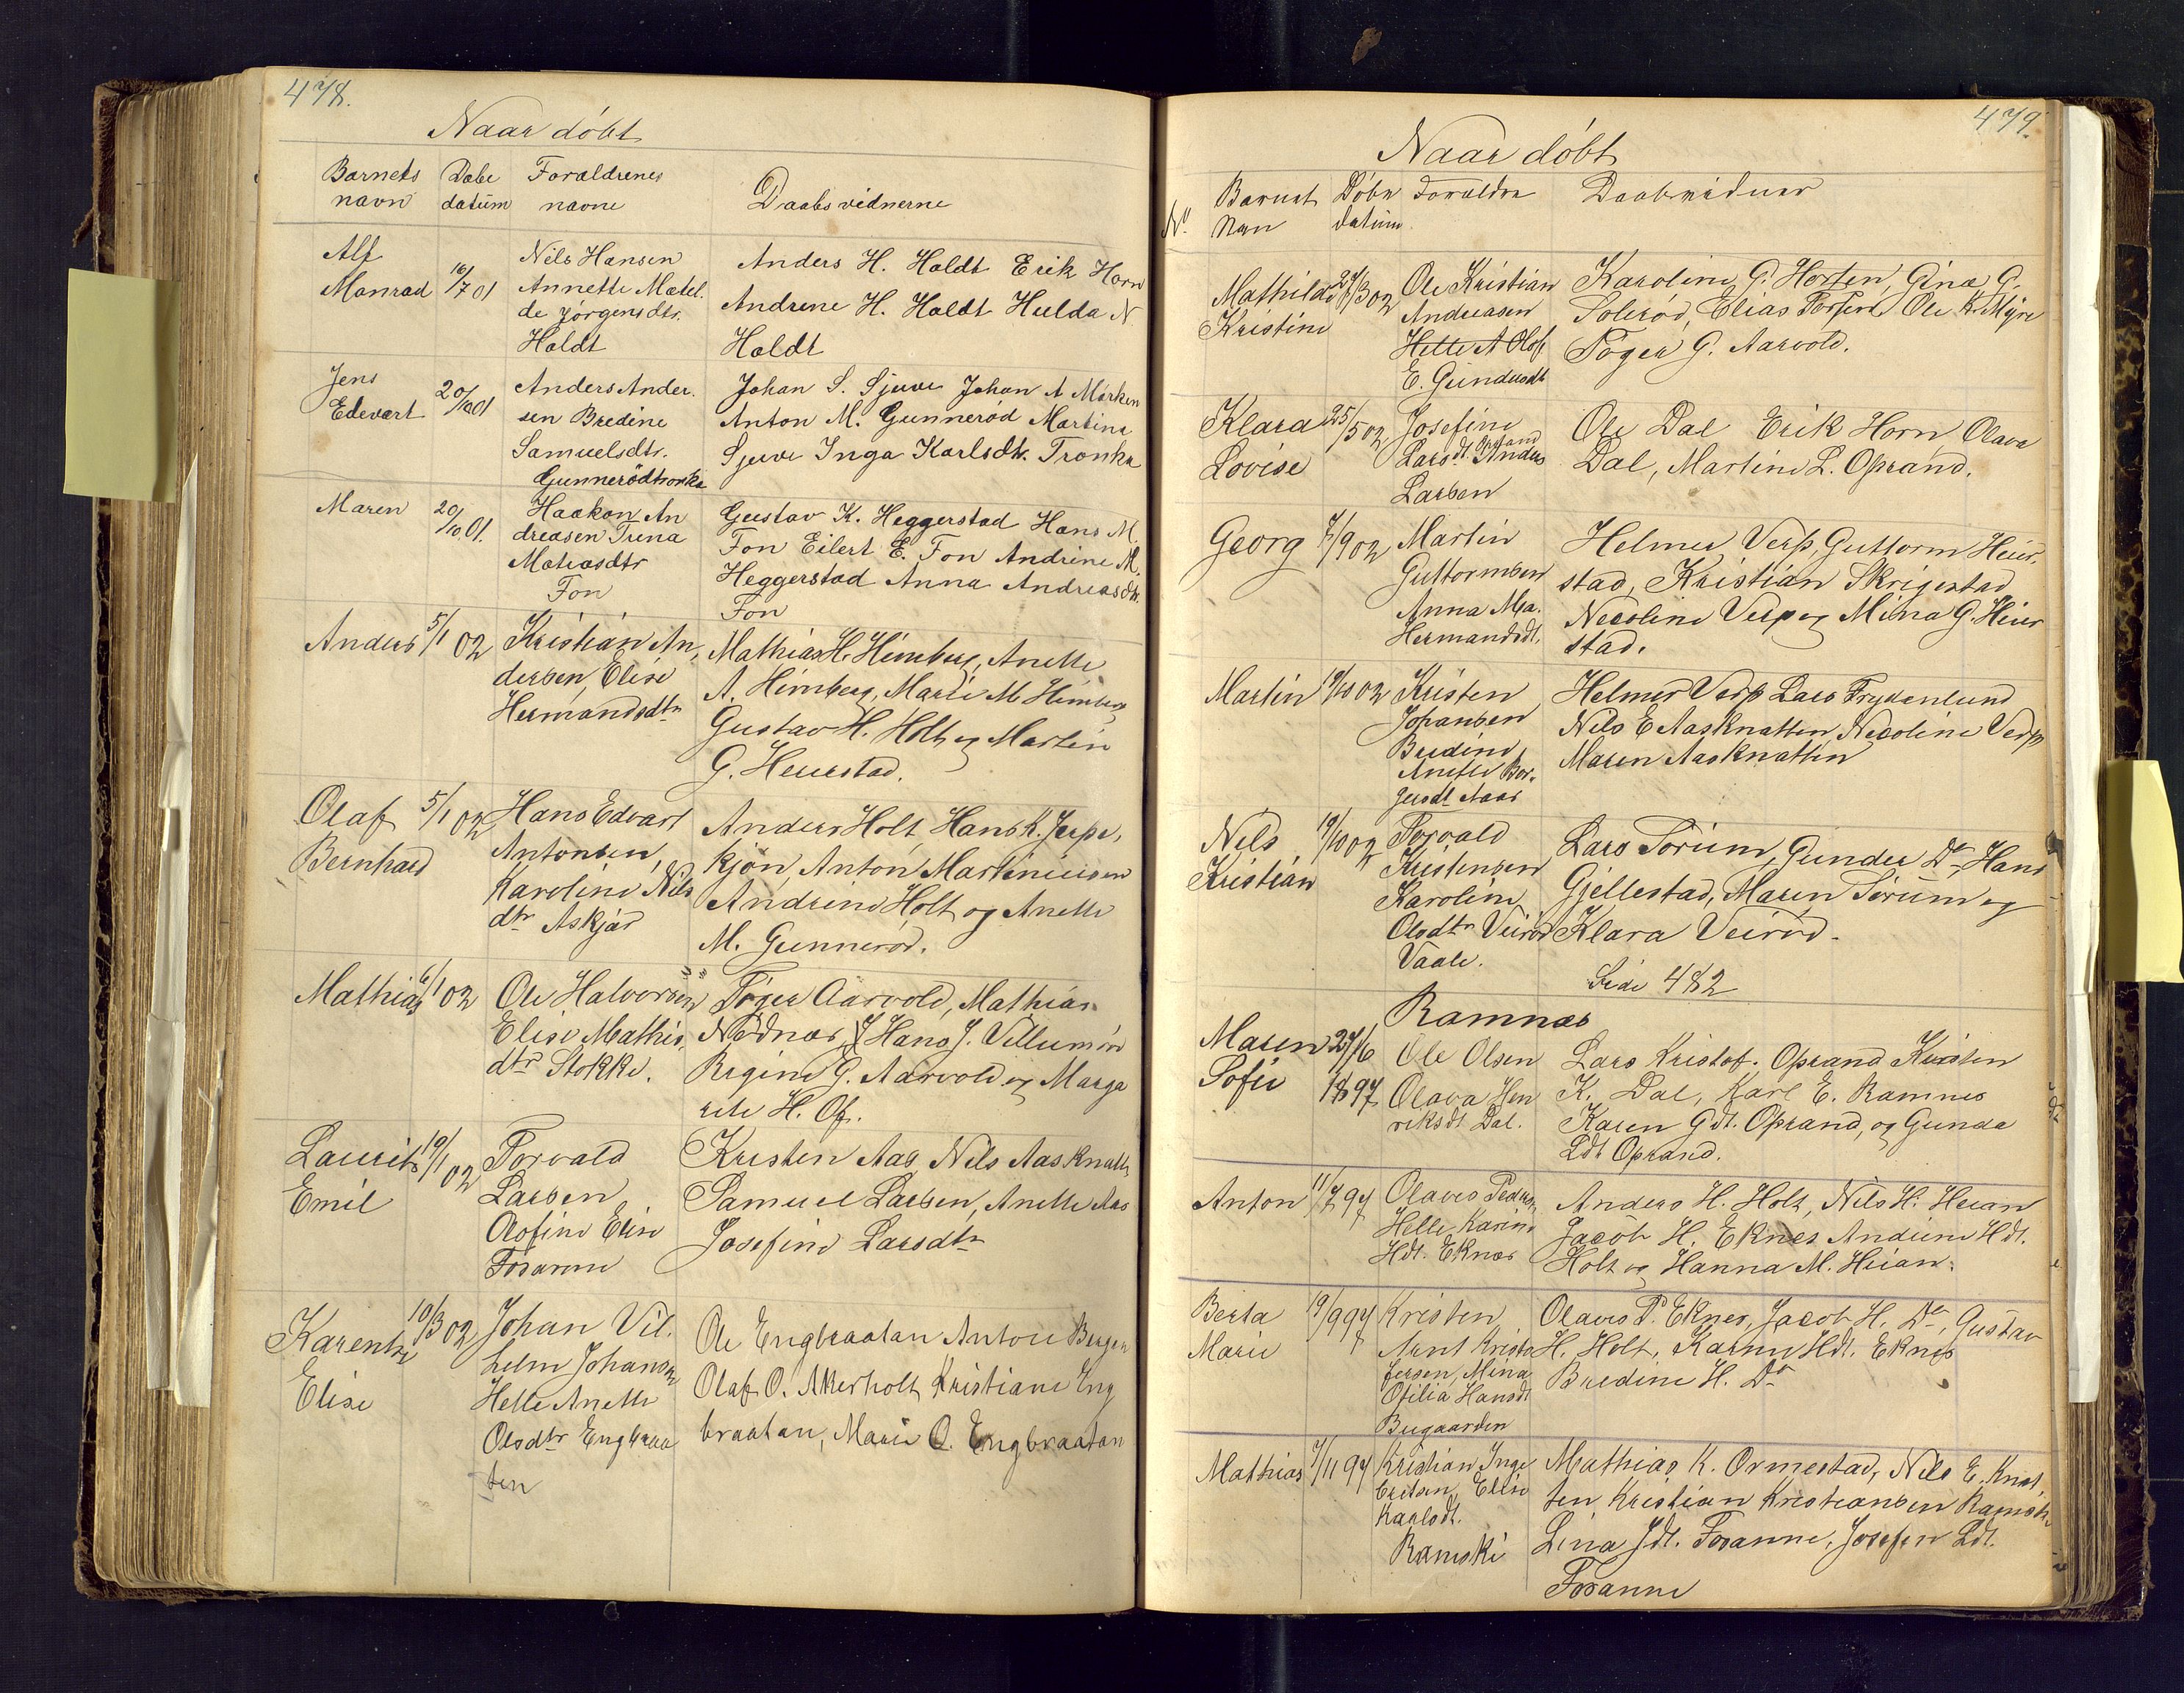 478.
Naar döbt
Barnets navn Døbe datum Foraldrenes navne Daabsvidnerne
Alf Monrad 16/7 01
Nils Hansen
Annette Matel.
de Jörgensdtr.
Holdt
Anders H. Holdt Erik Horn
Andrene H. Holdt Hulda N
Holdt
Jens Edevart 20/10 01
Anders Ander.
sen Bredine
Samuelsdtr.
Gunnerödtronka
Johan S. Sjuve Johan A Mørken
Anton M. Gunneröd Martine
Sjuve Inga Karlsdtr. Tronka
Maren 20/10 01.
Haakon An
dreasen Trina
Matiasdtr
Fon
Gustav K. Heggerstad Hans M.
Fon Eilert E. Fon Andrine M.
Heggerstad Anna Andreasdtr.
Fon
Anders 5/1 02
Kristian An,
dersen, Elise
Hermandsdtr
Mathias H. Himberg, Anette
A. Himberg, Marti M Himberg
Gustav H. Holt og Martin
G. Heierstad.
Olaf Bernhard 5/1 02
Hans Edvart
Antonsen
Karoline Nils
dtr Askjær
Anders Holt Hans K. Jerpe,
kjøn, Anton Martiniusen
Andrine Holt og Anette
M. Gunneröd.
Mathias 6/1 02
Ole Halvorsen
Elise Mathis,
dtr Stokke.
Töger Aarvold, Mathias
Nødnæs, Hans J. Villumsrö
Regine G. Aarvold og Marga
rete H. Of.
Laurits Emil 19/1 02
Torvald
Larsen
Olofine Elise
Fosanne
Kristen Aas Nils Aasknatt
Samuel Larsen, Anette Aas
Josefine Larsdtr
Karentze Elise 10/3 02
Johan Vil.
helm Johansen
Helle Anette
Olsdtr Engbraa
ten
Ole Engbraatan Anton Bergen
Olaf O. Akerholt, Kristiane Eng
braatan, Marie O. Engbraatan
479.
Naar döbt
No Barnet Navn Døbe datum Foraldre Daabsvidner
Mathilde Kristine 27/3 02
Ole Kristian
Andreasen
Helle A Olof
E. Gundersdt
Karoline G. Horten, Gina G.
Solerød, Elias Torsen Ole K. Myre
Töger G. Aarvold.
Klara Lovise 25/5 02
Josefine
Larsdt Oprand Anders
Larsen
Ole Dal Erik Horn Olava
Dal, Martine L. Oprand.
Georg 7/9 02
Martin
Guttormsen
Anna Ma.
Hermandsdt,
Helmer Verp, Guttorm Heier,
stad, Kristian Skrigestad
Necoline Verp og Mina G. Heier
stad.
Martin 19/10 02
Kristen
Johansen
Bredine
Anette Bor.
gersdt Aaas
Helmer Verp Lars Frydenlund
Nils E Aasknatten, Necoline Verp
Maren Aasknatten
Nils Kristian 19/10 02
Torvald
Kristensen
Karoline
Olsdtr Veirød
Vaale.
Lars Sörum, Gunder Do, Hans
Gjellestad, Maren Sörum og
Klara Veirød.
Side 482
Ramnæs
Maren Sofie 27/6 1897
Ole Olsen
Olava Hen
riksdt Dal.
Lars Kristof. Oprand Kristen
K. Dal, Karl E. Ramnes
Karen Gdt. Oprand, og Gunda
Ldt Oprand.
Anton 11/7 97
Olaves Peders
Helle Karine
Hdt. Eknæs
Anders H. Holt, Nils H. Heian
Jacob H. Eknes Andrine Hdt.
Holt og Hanna M. Heian.
Berta Marie 19/9 97
Kristen
Arnt Kristo
fersen, Mina
Ofilia Hansdt
Bugaarden
Olaves P. Eknes, Jacob H. Do, Gustav
H. Holt, Karine Hdt. Eknes
Bredine H. Do
Mathias 7/11 97
Kristian Inge
britsen, Elise
Karlsdt.
Ramski
Mathias K. Ormestad, Nils E. Knat,
ten Kristian Kristiansen Ramski
Lina Jdt. Fosanne, Josefin Ldt.
Fosanne